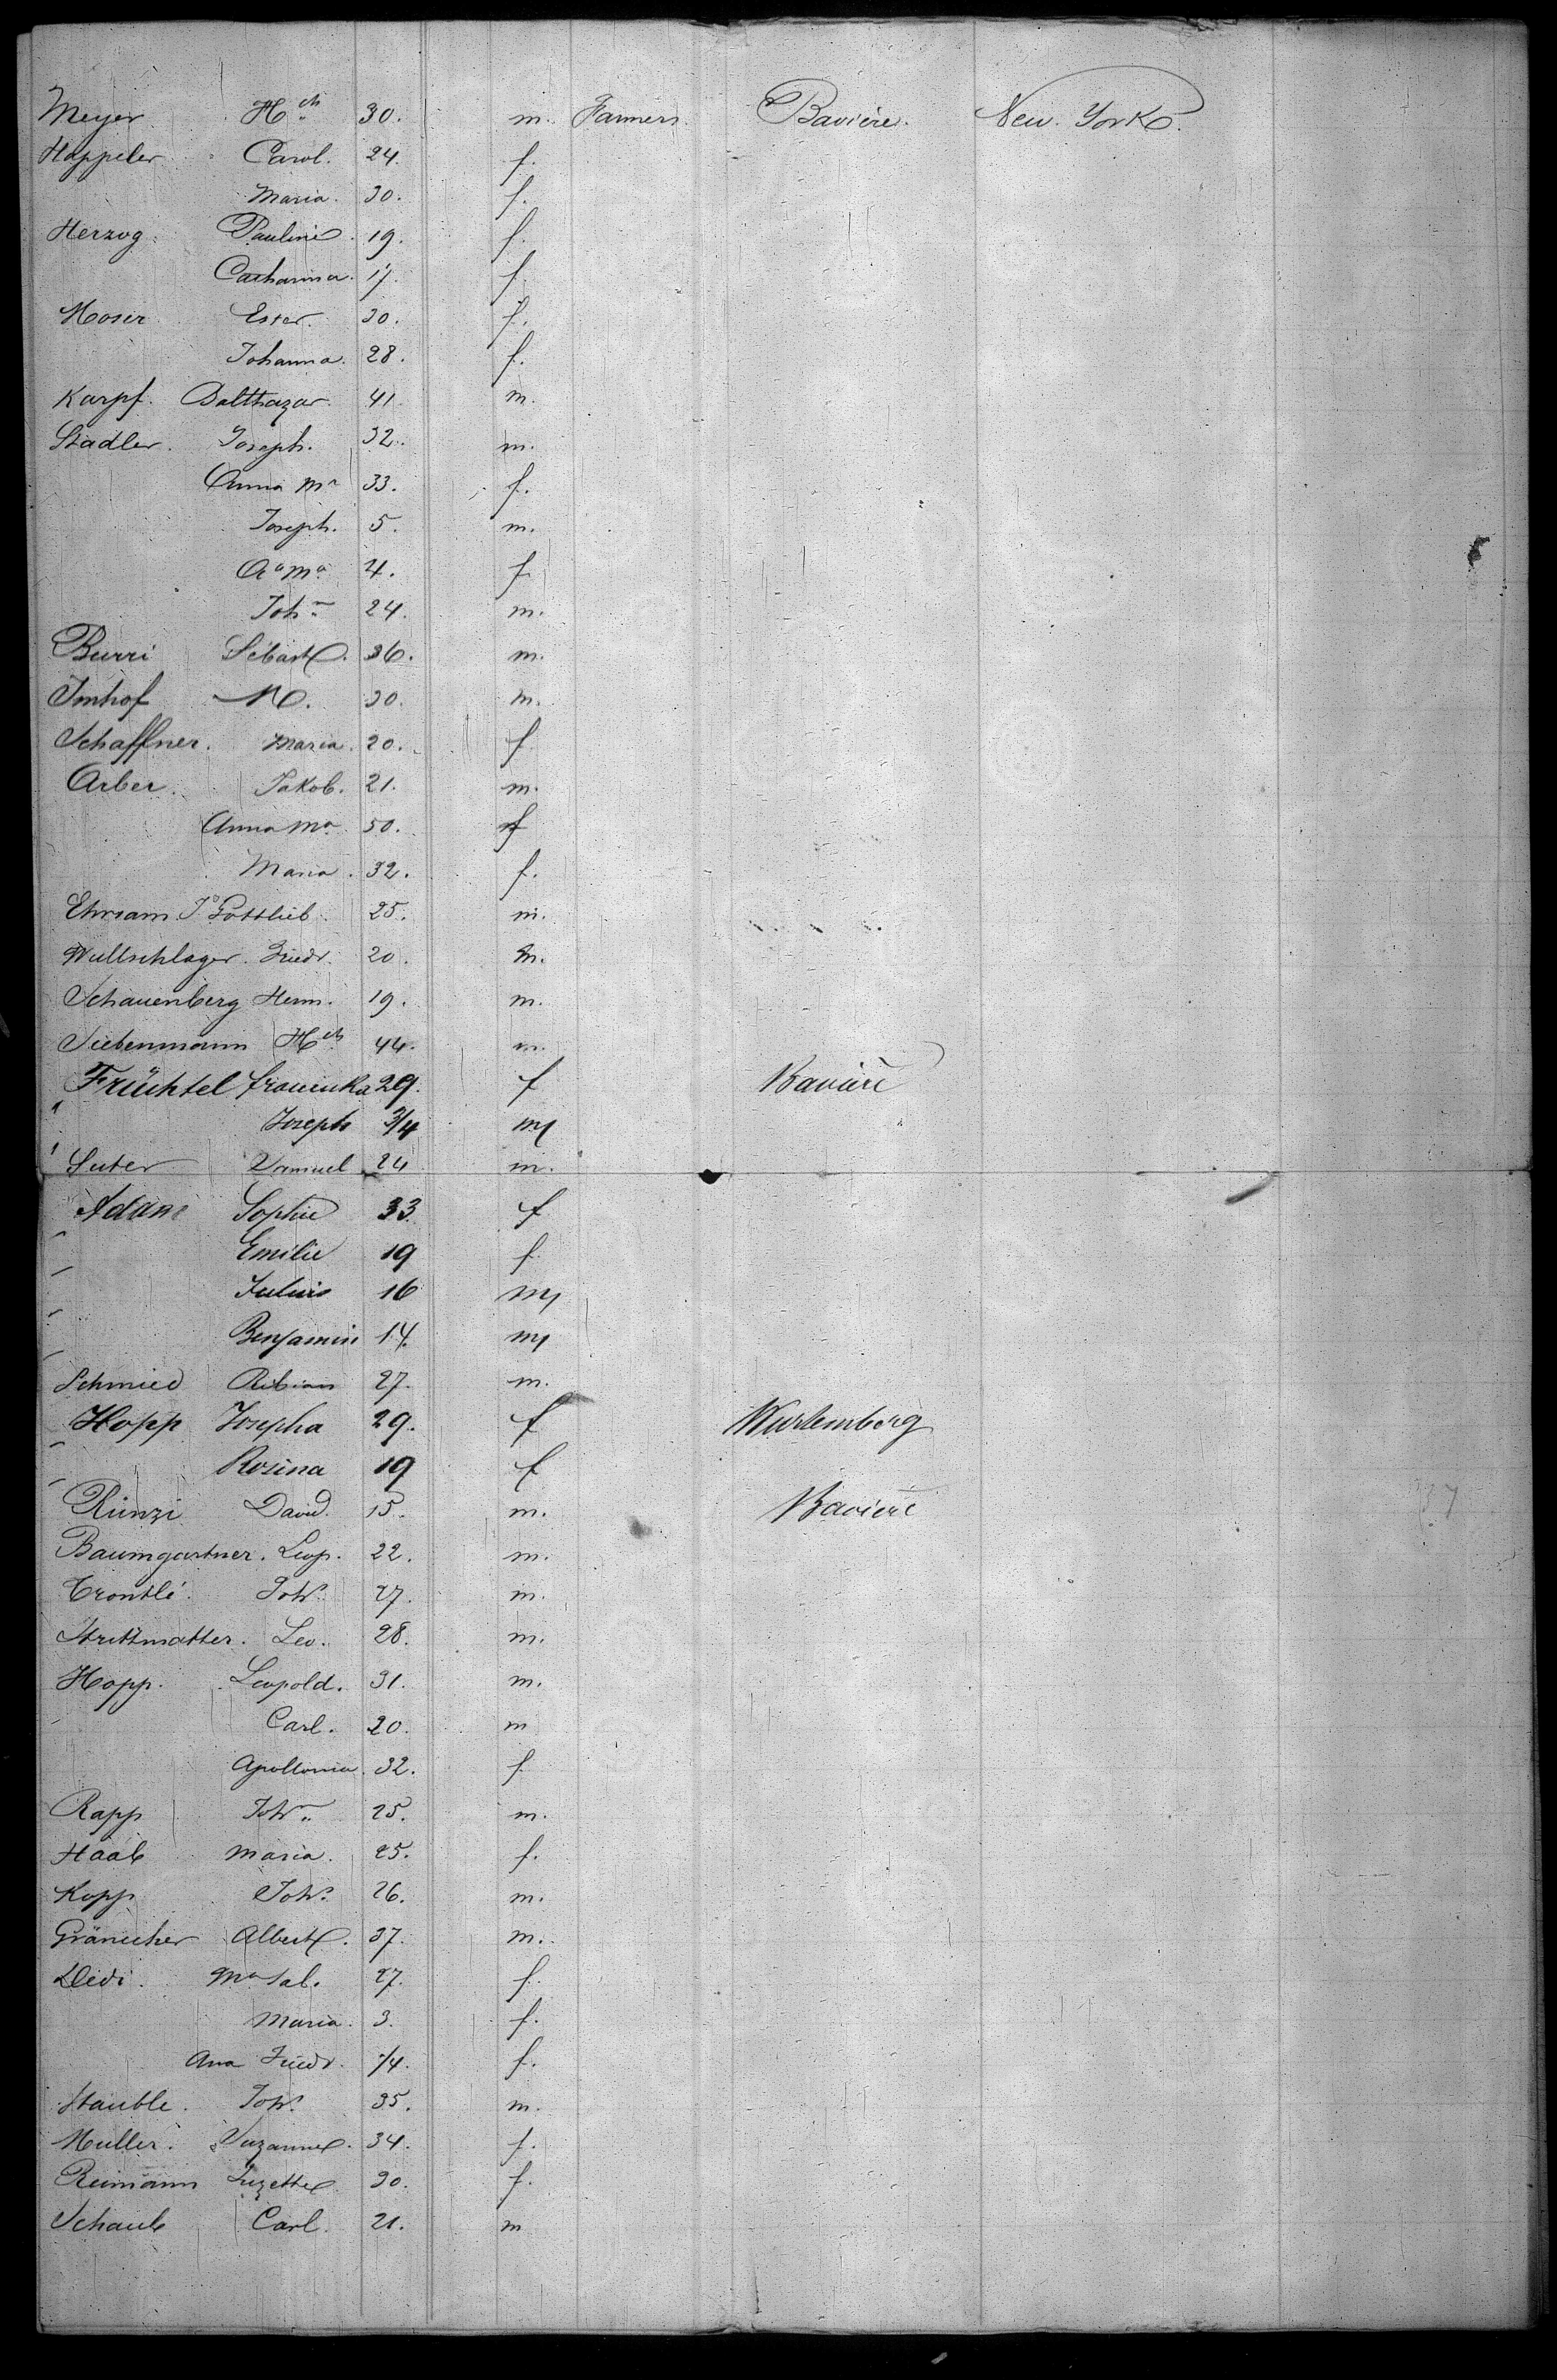 Meyer Hch 30. m. Farmers Bavière. New. York.
Happeler Carol. 24. f.
Maria. 30. f.
Herzog. Pauline. 19. f.
Catharina. 17. f.
Moser Ester. 30. f.
Johanna. 28. f.
Karpf. Balthazar. 41. m.
Stadler. Joseph. 32. m.
Anna Ma 33. f.
Joseph. 5. m.
Aa Ma 4. f.
John 24. m.
Burri Sebast. 36. m.
Imhof M. 30. m.
Schaffner. Maria. 20. f
Arber. Jakob. 21. m.
Anna Ma 50. f
Maria. 32. f.
Ehrsam Jo Gottlieb. 25. m.
Wullschlager. Friedr. 20. m.
Schauenberg Herm. 19. m.
Siebenmann Hch 44. m.
Früchtel 29. f Bavière
" Joseph 3/4 m
Suter 24 m.
Adam Sophie 33. f
" Emilie 19 f
" Julius 16 m
" Benjamin 14. m
Schmied 27. m.
Hopp Josepha 29. f Wurtemberg
" Rosina 19 f
Rünzi David. 15. m. Bavière
Baumgartner. Leop. 22. m.
Joh. 27. m.
Strittmatter. Leo. 28. m.
Hopp. Leopold. 31. m.
Carl. 20. m
Apollonia. 32. f
Rapp John 25. m.
Haab Maria. 25. f.
Kopp Joh. 26. m.
Gränicher Albert. 37. m.
Dedi. Ma Sal. 27. f.
Maria. 3. f.
Ana Friedr. 1/4. f.
Stauble. Joh. 35. m.
Muller. Suzanne. 34. f.
Reimann Suzette. 30. f.
Schaub Carl. 21. m